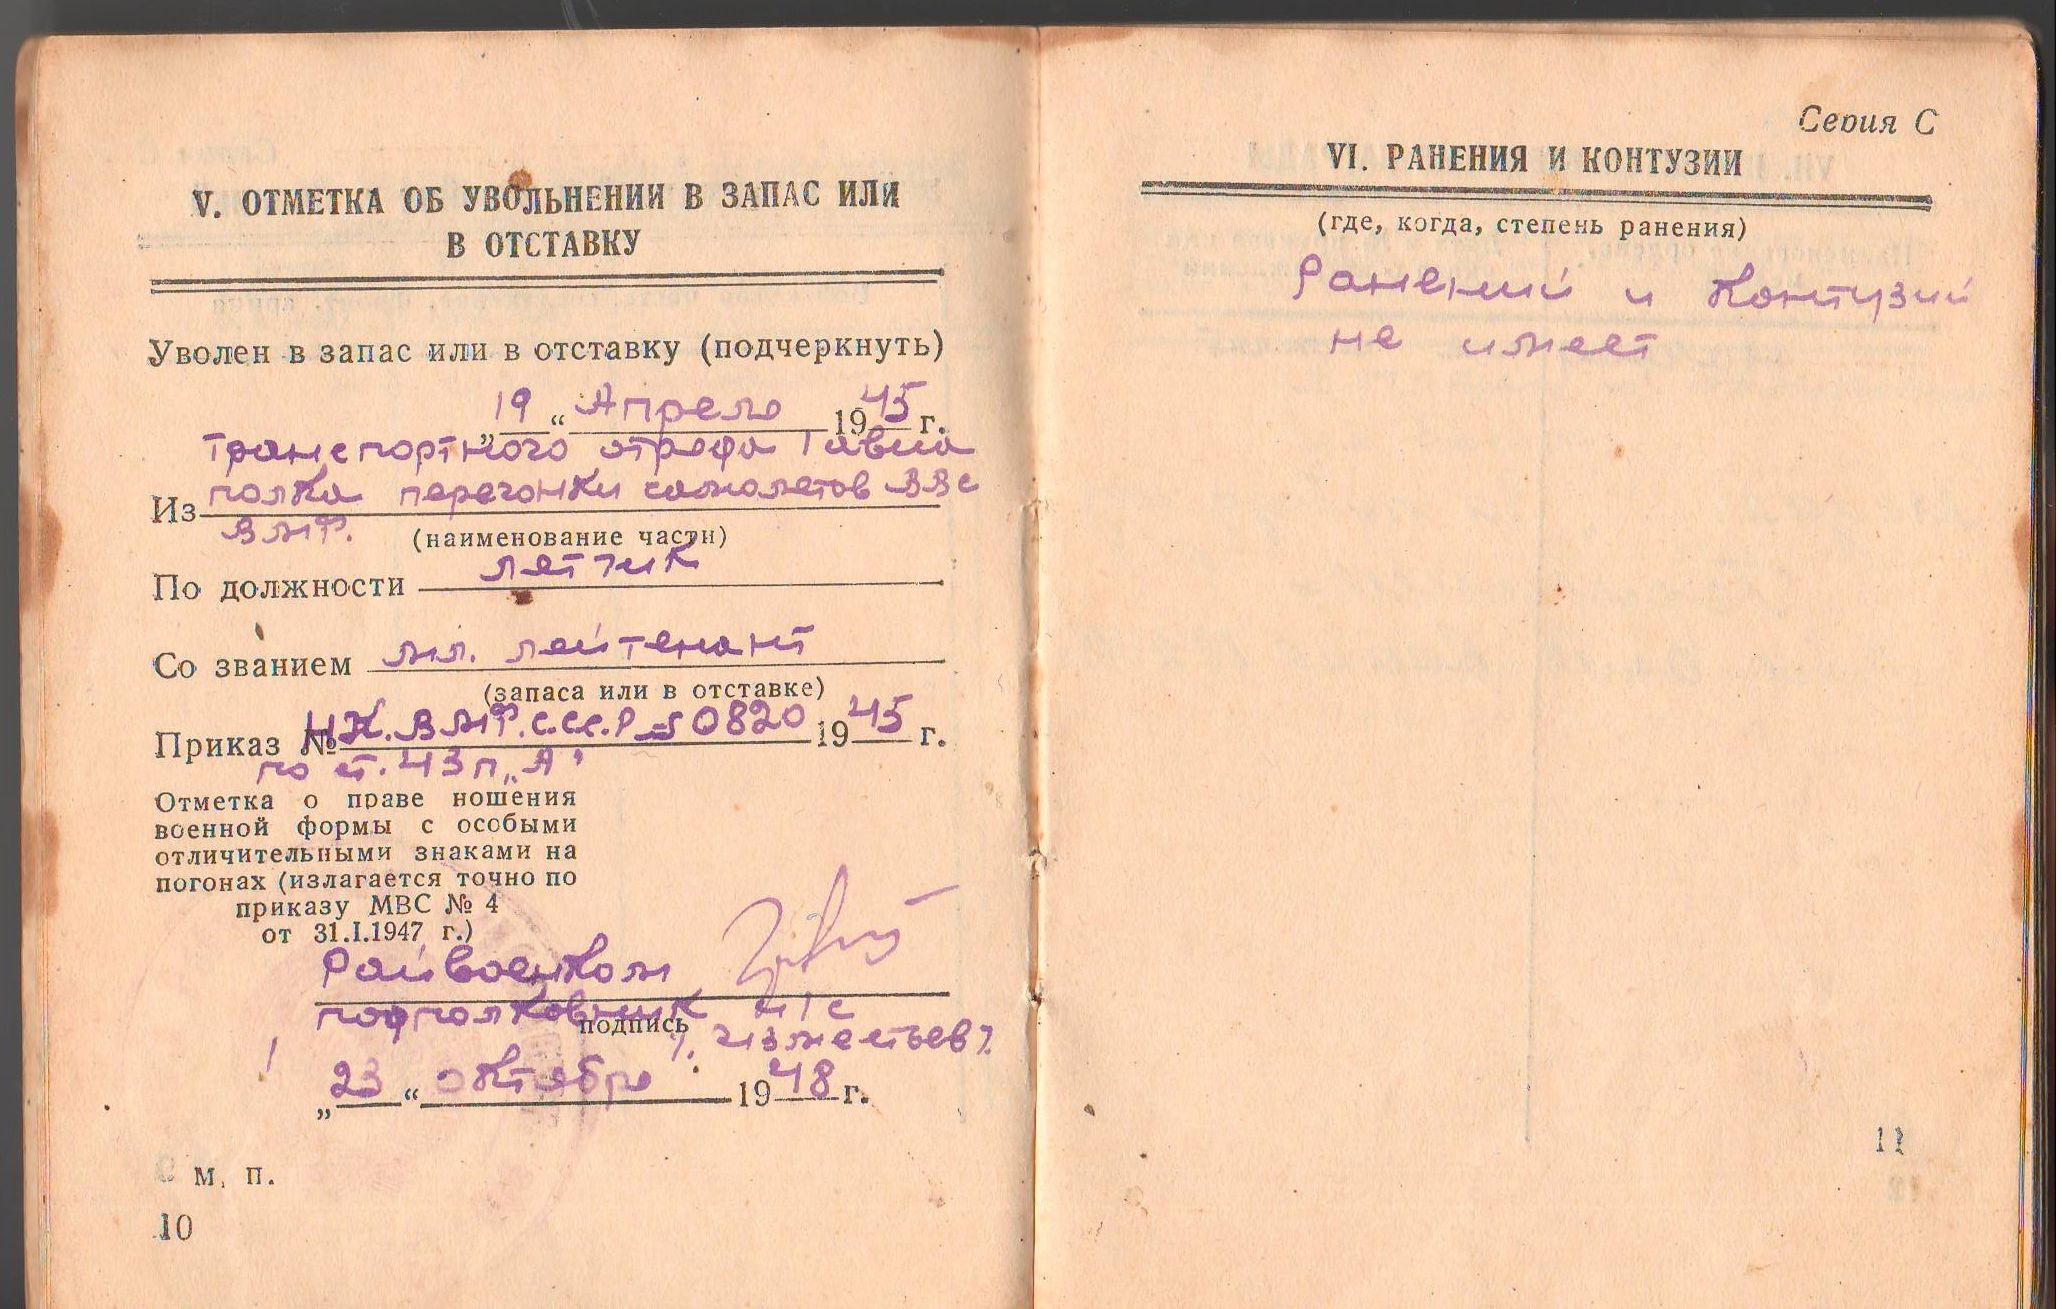 V. ОТМЕТКА ОБ УВОЛЬНЕНИИ В ЗАПАС ИЛИ
В ОТСТАВКУ
Уволен в запас или в отставку (подчеркнуть)
„19“ Апреля 1945 г.
Транспортного отряда 1 авиа
Из полка перегонки самолетов ВВС
ВМФ.
(наименование части)
По должности летчик
Со званием мл. лейтенант
(запаса или в отставке)
Приказ № НК. ВМФ. С.С.С.Р №0820 1945 г.
по ст. 43 п „А“
Отметка о праве ношения
военной формы с особыми
отличительными знаками на
погонах (излагается точно по
приказу МВС № 4
от 31.I.1947 г.)
Райвоенком
подполковник
подпись
„23“ октября 1948 г.
М. П.
10
Серия С
VI. РАНЕНИЯ И КОНТУЗИИ
(где, когда, степень ранения)
Ранений и контузий
не имеет
11